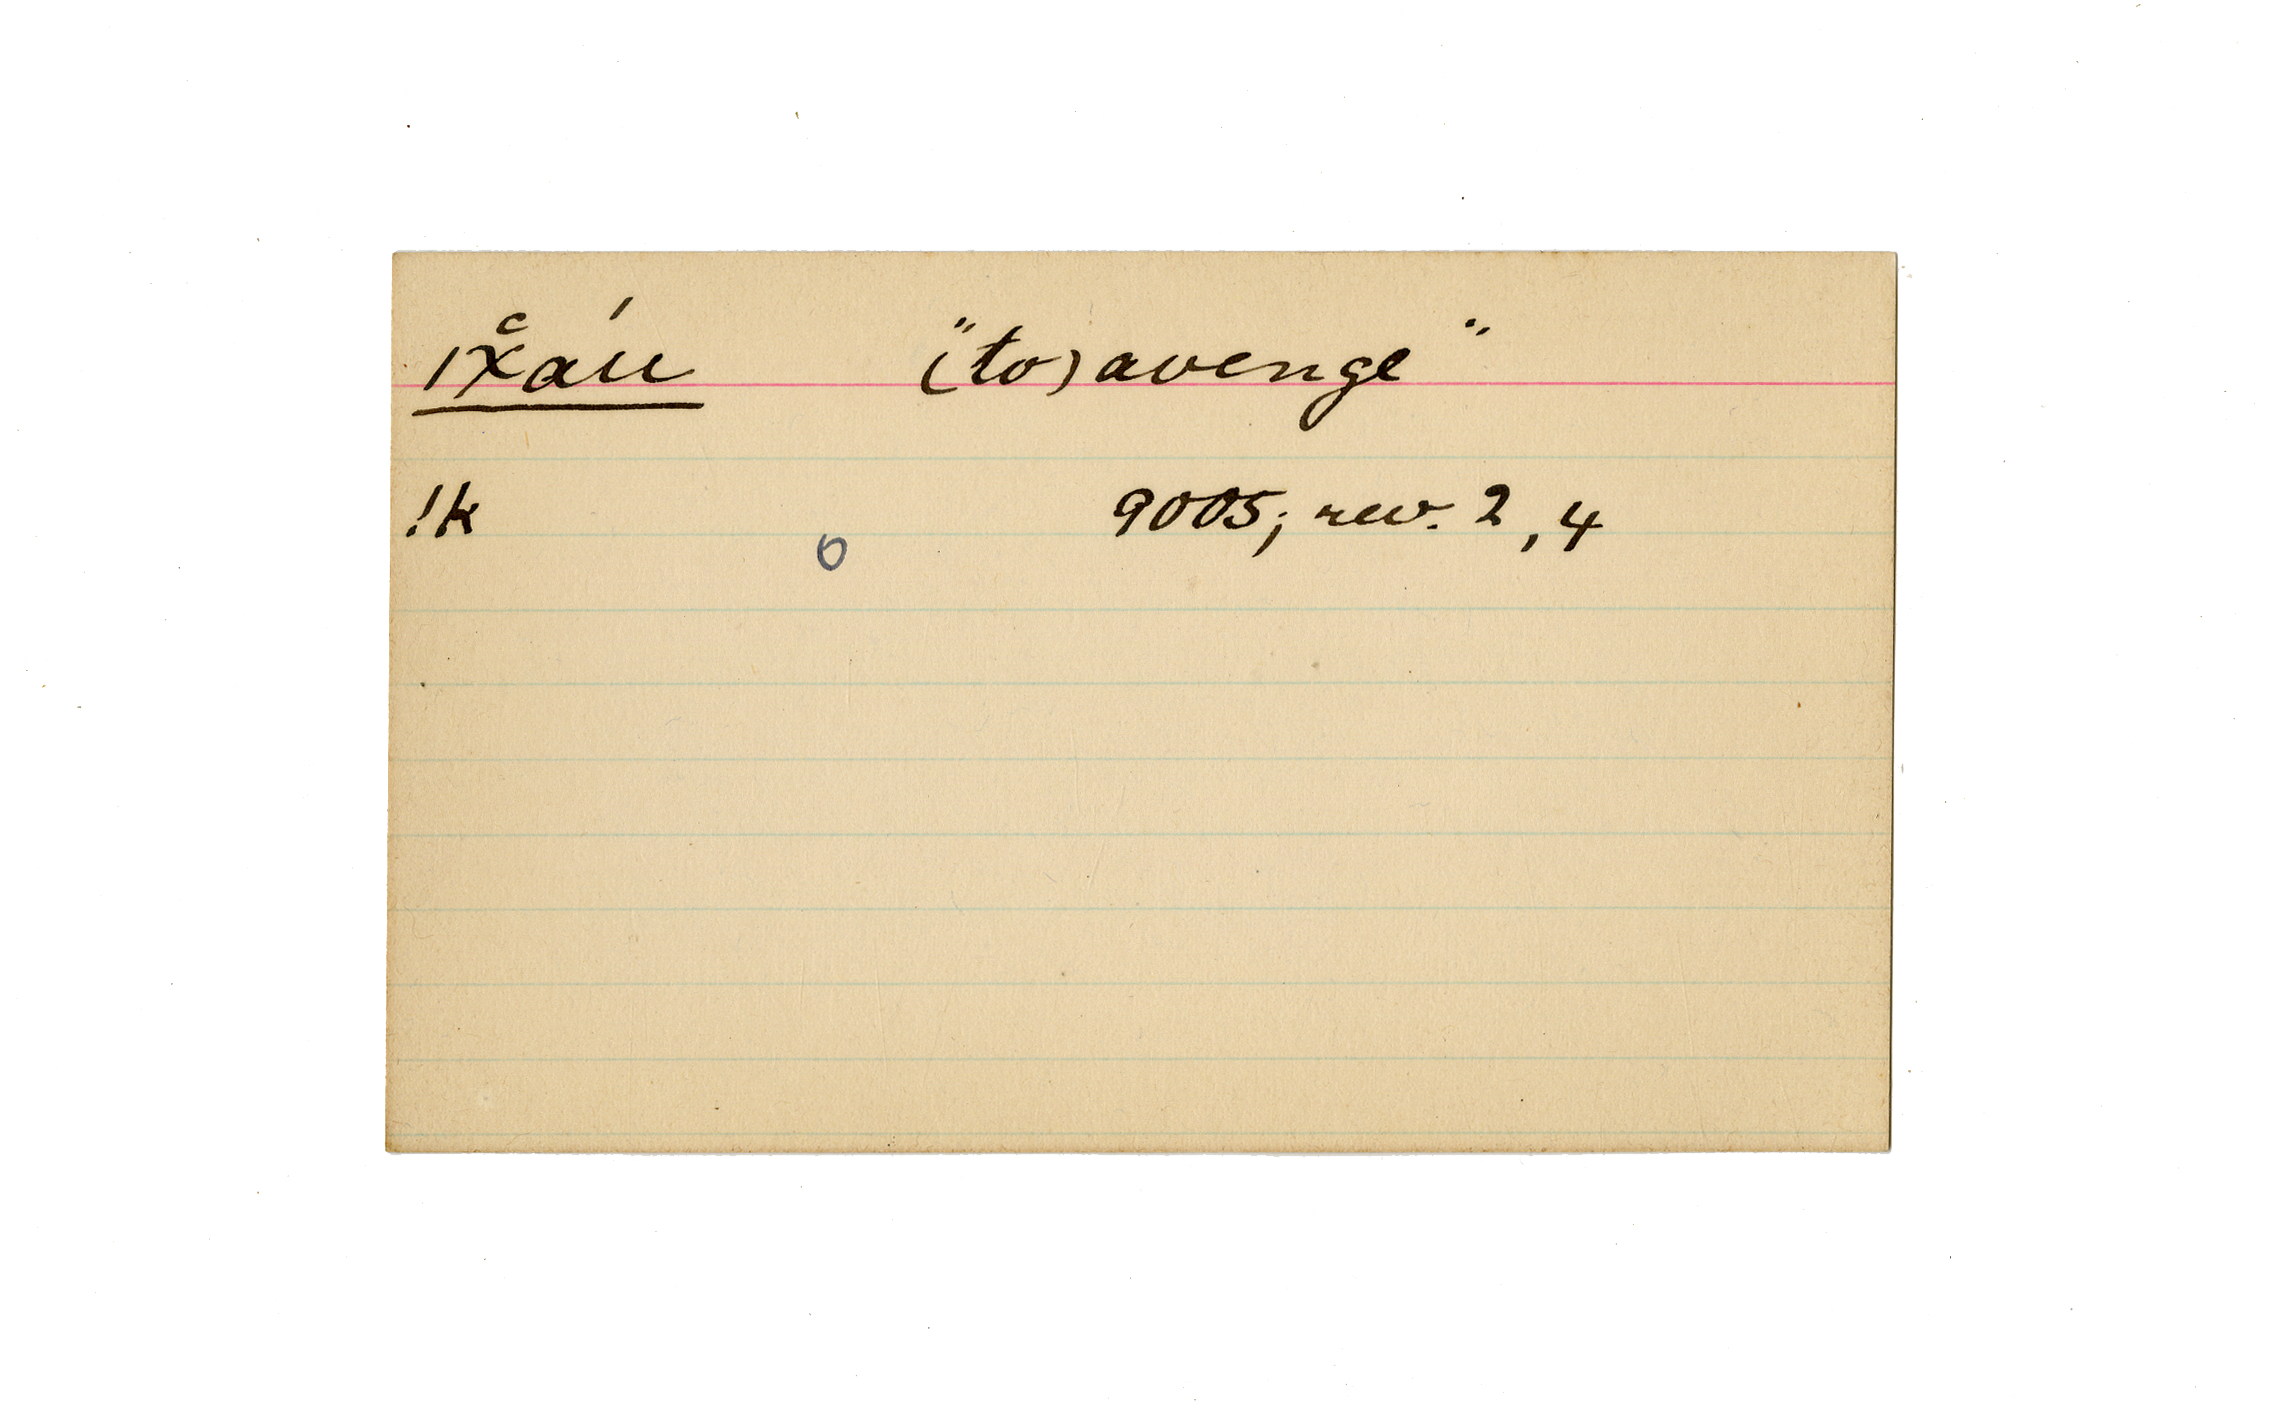 ıx̆áu "(to) avenge"
!k 9005; rev. 2, 4
6